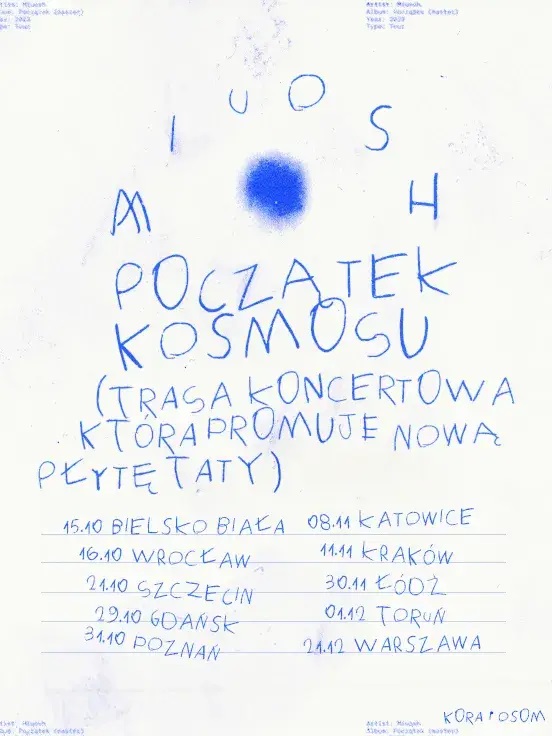 Artist: Miuosh
Year: 2023
Type: Tour
Artist: Miuosh
Album: Początek (master)
Year: 2023
Type: Tour
MIUOSH
POCZĄTEK
KOSMOSU
(TRASA KONCERTOWA
KTÓRA PROMUJE NOWĄ
PŁYTĘ TATY)
15.10 BIELSKO BIAŁA
16.10 WROCŁAW
21.10 SZCZECIN
29.10 GDAŃSK
31.10 POZNAŃ
08.11 KATOWICE
11.11 KRAKÓW
30.11 ŁÓDŹ
01.12 TORUŃ
21.12 WARSZAWA
KORA I OSOM
Artist: Miuosh
Album: Początek (master)
Artist: Miuosh
Album: Początek (master)